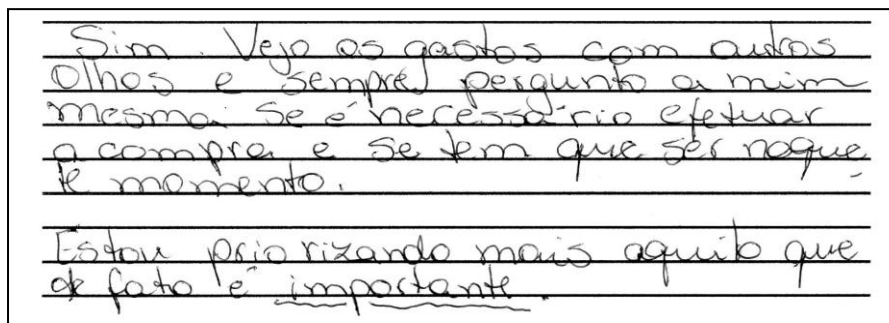 Sim. Vejo os gastos com outros
olhos e sempre pergunto a mim
mesma se é necessário efetuar
a compra e se tem que ser naque
le momento.
Estou priorizando mais aquilo que
de fato é importante.